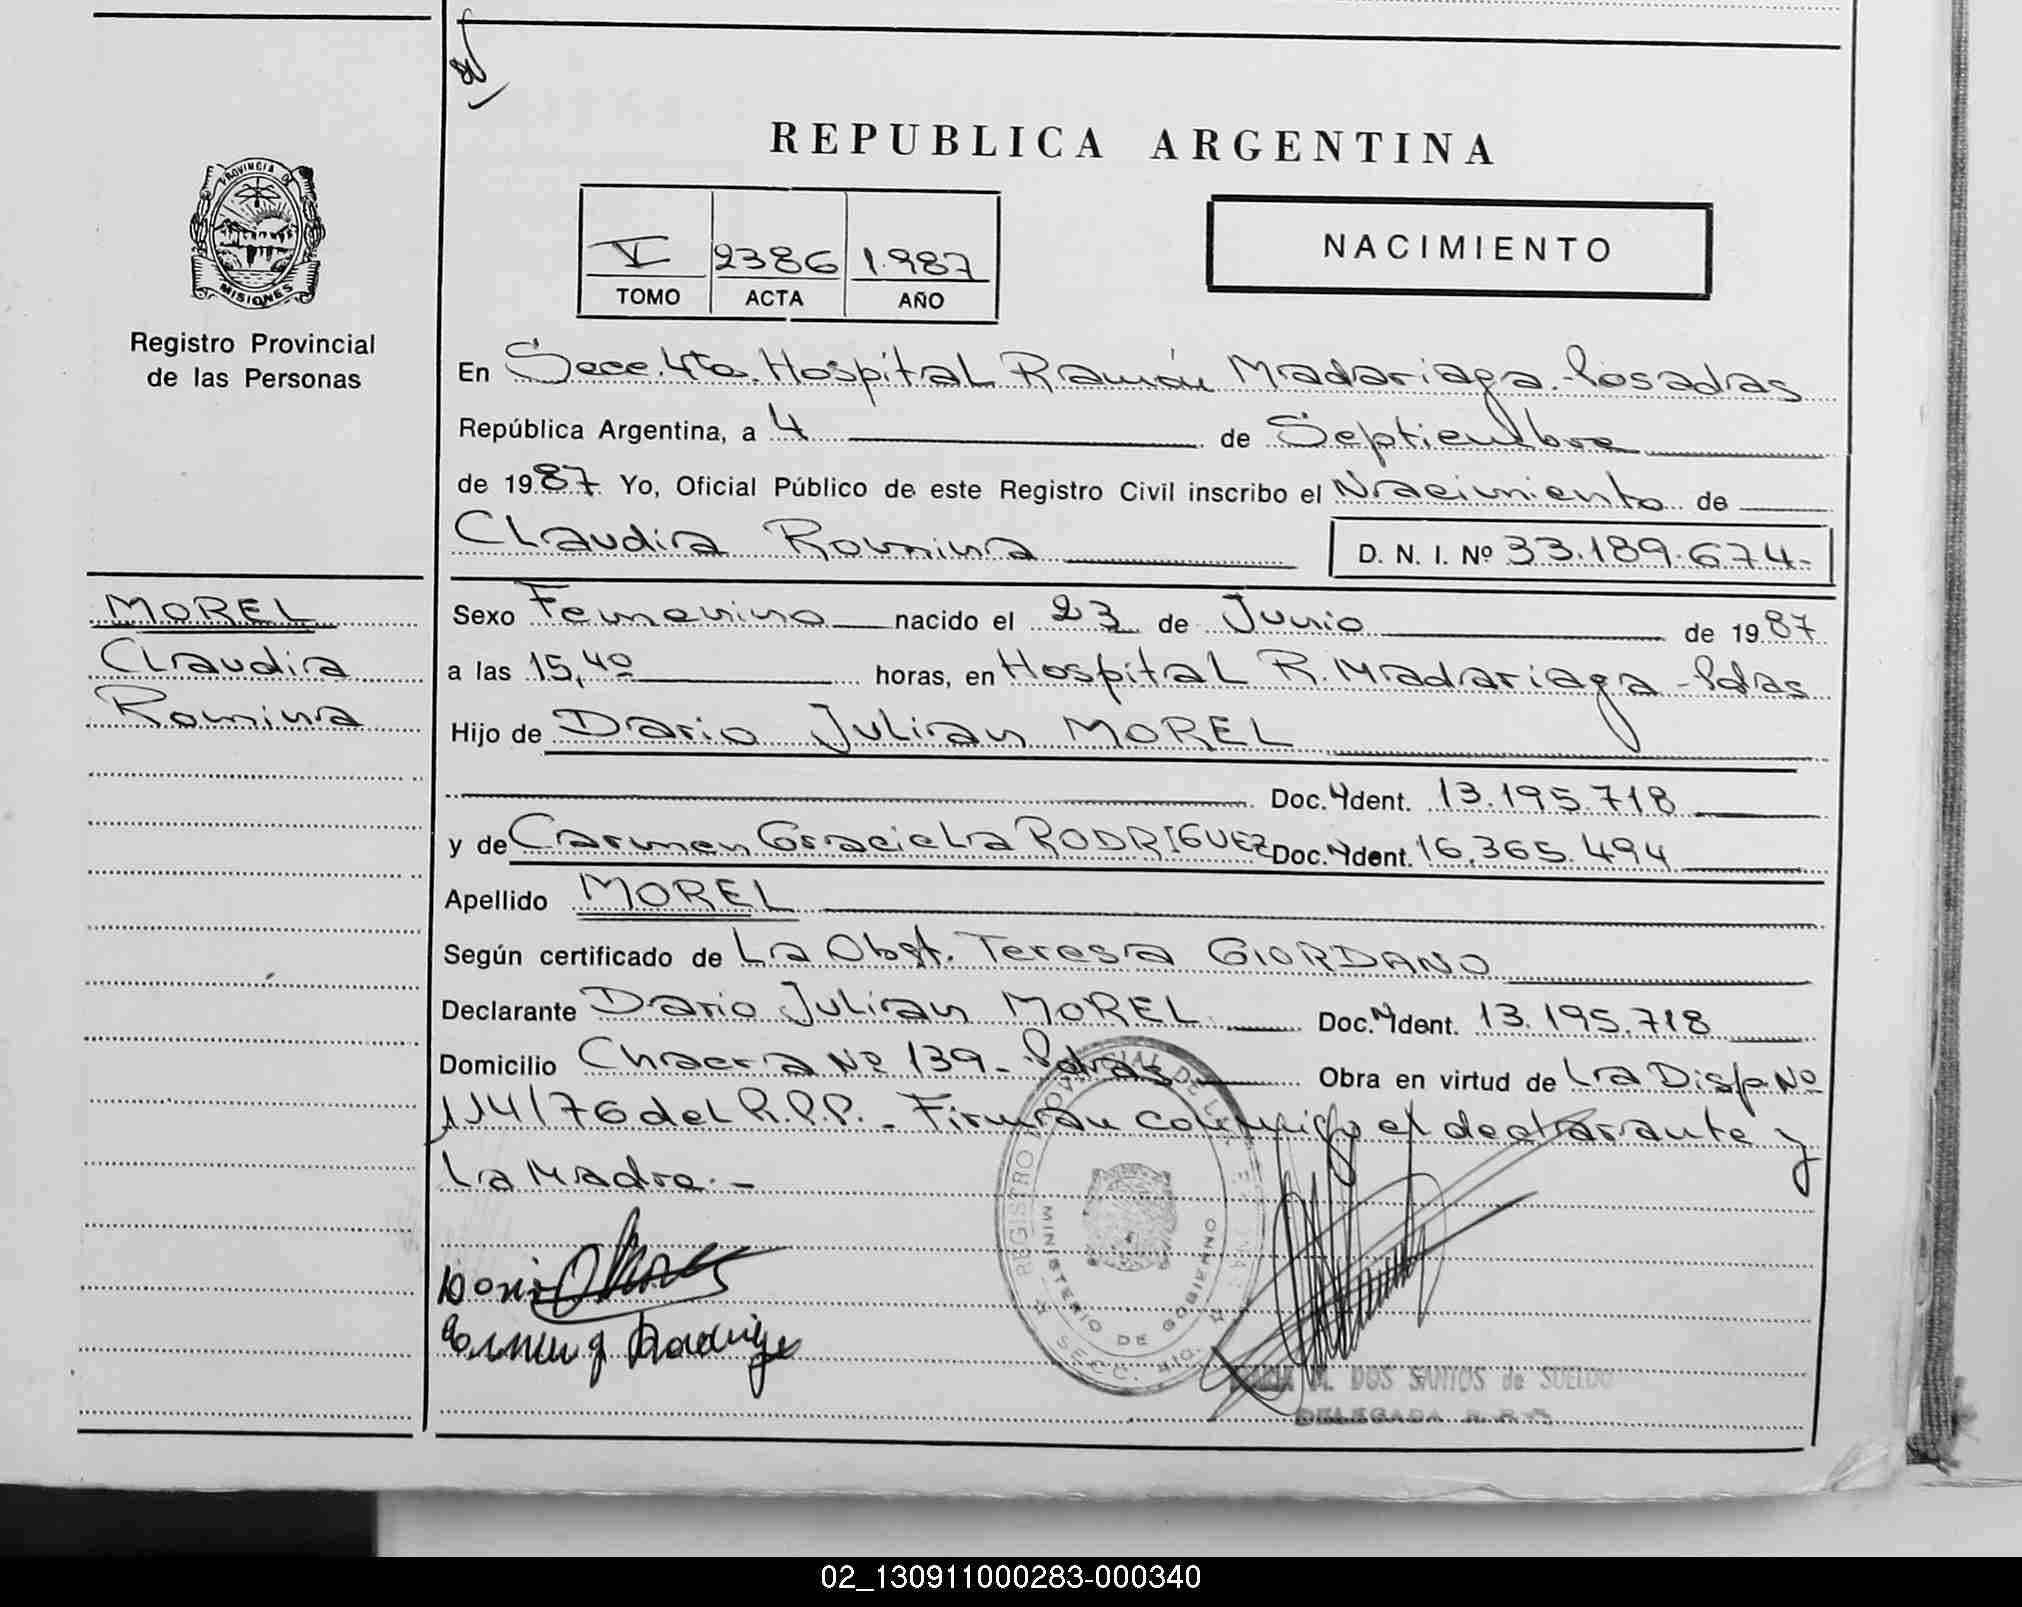 REPUBLICA ARGENTINA
PROVINCIA DE
MISIONES
Registro Provincial
de las Personas
V 2386 1.987
TOMO ACTA AÑO
NACIMIENTO
En Secc. 4ta. Hospital Ramón Madariaga. Posadas
República Argentina, a 4 de Septiembre
de 1987. Yo, Oficial Público de este Registro Civil inscribo el Nacimiento de
Claudia Romina D. N. I. Nº 33.189.674-
MOREL
Claudia
Romina
Sexo Femenino nacido el 23 de Junio de 1987
a las 15,40 horas, en Hospital R. Madariaga - Pdas
Hijo de Dario Julian MOREL
Doc. Ydent. 13.195.718
y de Carmen Graciela RODRIGUEZ Doc. Ydent. 16.365.494
Apellido MOREL
Según certificado de La Obst. Teresa GIORDANO
Declarante Dario Julian MOREL Doc. Ydent. 13.195.718
Domicilio Chacra Nº 139 - Pdas Obra en virtud de La Disp Nº
114/76 del R.P.P. - Firman conmigo el declarante y
La Madre. -
REGISTRO PROVINCIAL DE LAS PERSONAS
MINISTERIO DE GOBIERNO
SECC. 4ta.
M. DOS SANTOS de SUELDO
DELEGADA R. P. P.
02_130911000283-000340